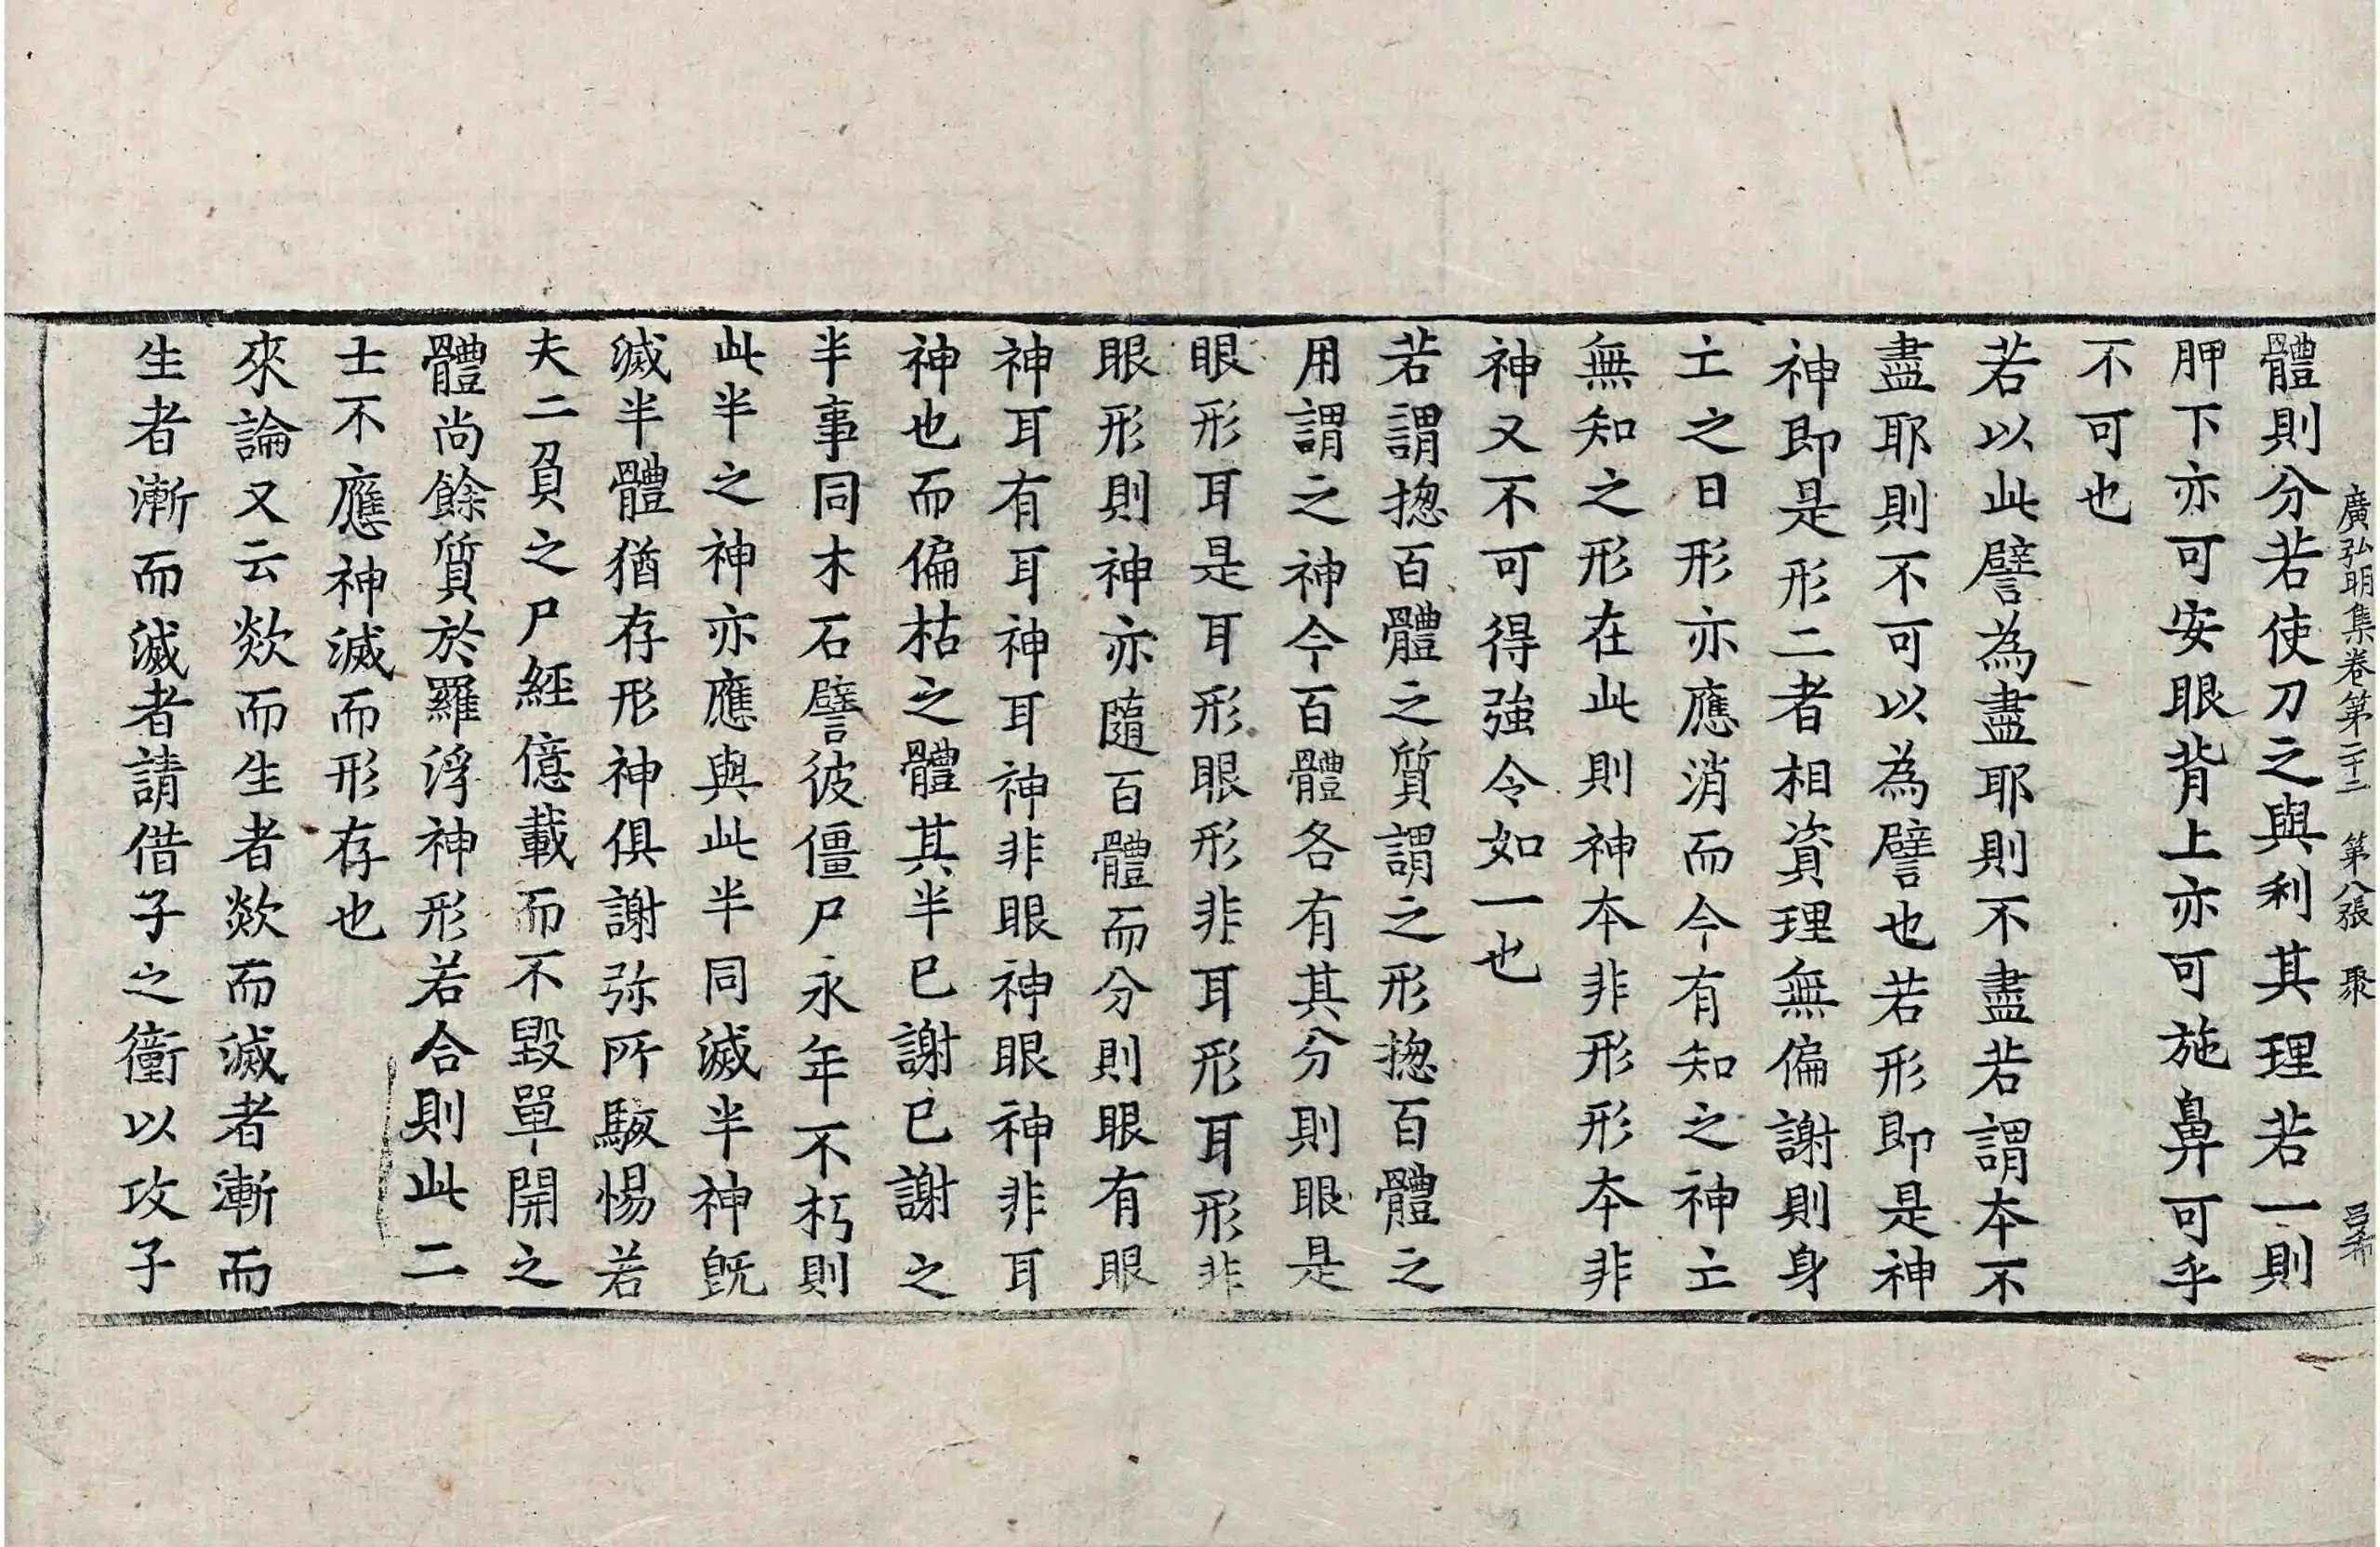 廣弘明集卷第二十二　第八張　聚　呂布
體則分若使刀之與利其理若一則
胛下亦可安眼背上亦可施鼻可乎
不可也
若以此譬為盡耶則不盡若謂本不
盡耶則不可以為譬也若形即是神
神即是形二者相資理無偏謝則身
亡之日形亦應消而今有知之神亡
無知之形在此則神本非形形本非
神又不可得強令如一也
若謂揔百體之質謂之形揔百體之
用謂之神今百體各有其分則眼是
眼形耳是耳形眼形非耳形耳形非
眼形則神亦隨百體而分則眼有眼
神耳有耳神耳神非眼神眼神非耳
神也而偏枯之體其半已謝已謝之
半事同木石譬彼僵尸永年不朽則
此半之神亦應與此半同滅半神旣
滅半體猶存形神俱謝弥所駭惕若
夫二負之尸經億載而不毀單開之
體尚餘質於羅浮神形若合則此二
士不應神滅而形存也
來論又云欻而生者欻而滅者漸而
生者漸而滅者請借子之衝以攻子